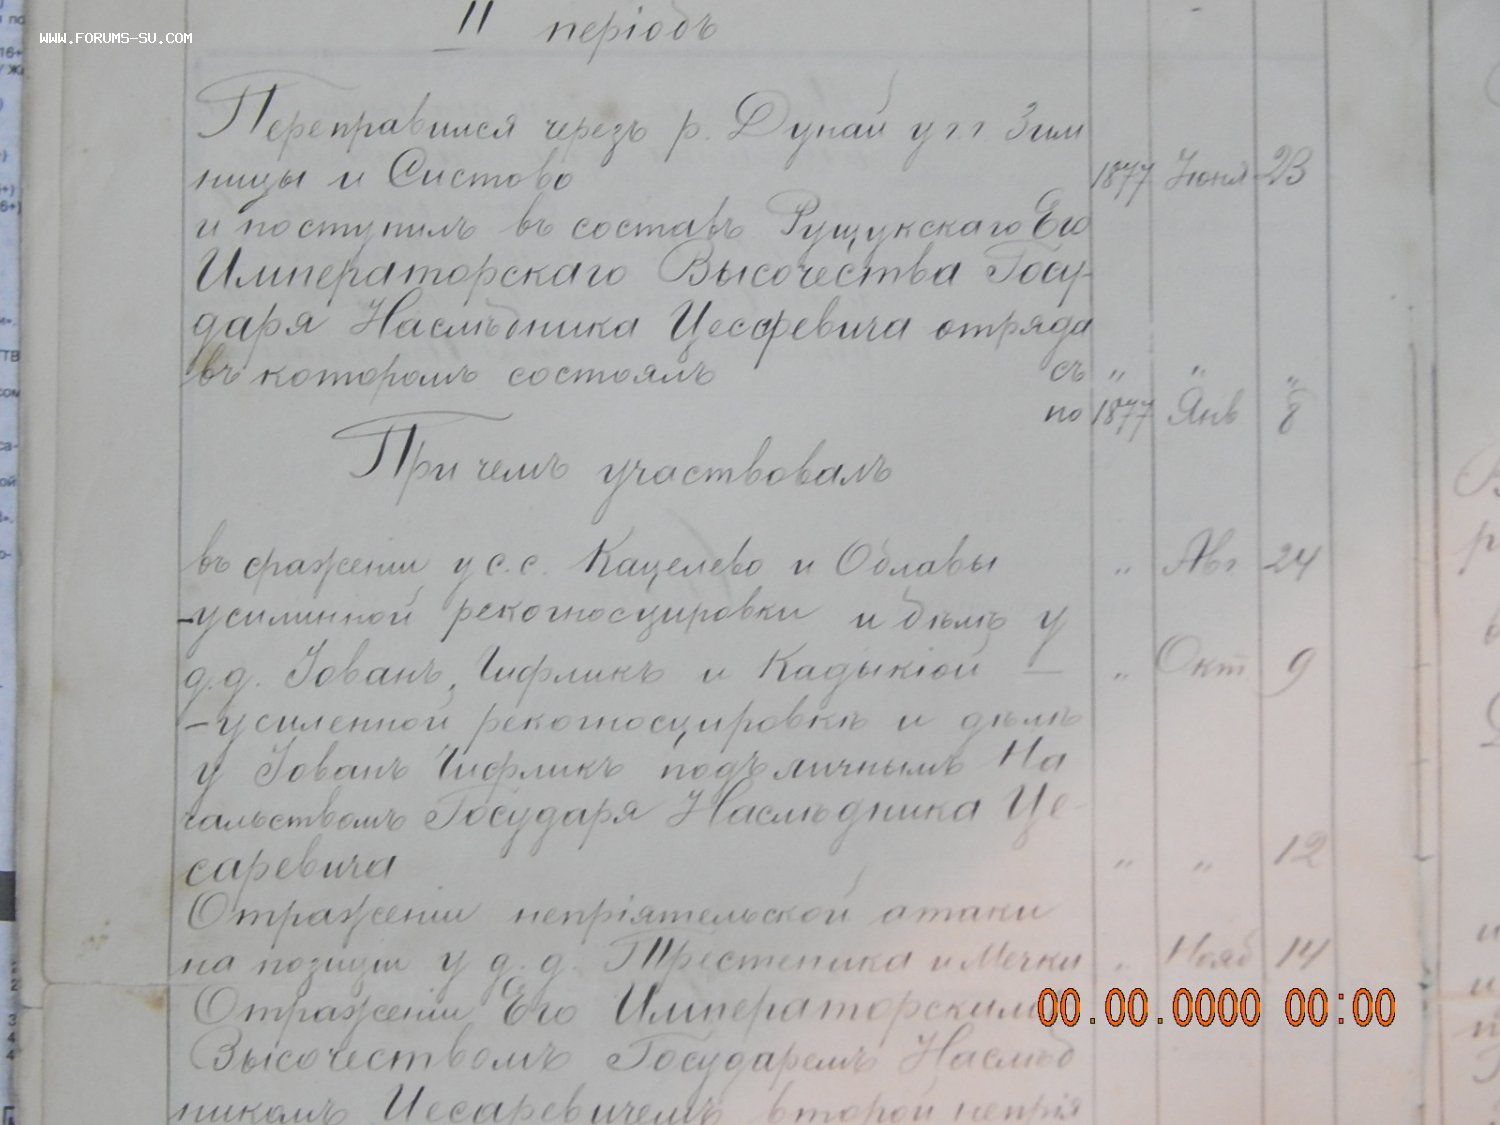 WWW.FORUMS-SU.COM
II періодъ
Переправился черезъ р. Дунай у г.г. Зим
ницы и Систово 1877 Іюня 23
и поступилъ въ составъ Рущукскаго Его
Императорскаго Высочества Госу-
даря Наслѣдника Цесаревича отряда
въ которомъ состоялъ съ „ „ „
по 1877 Янв 8
При чемъ участвовалъ
въ сраженіи у с.с. Кацелево и Облавы „ Авг 24
-усилинной рекогносцировки и дѣлѣ у
д.д. Іованъ, Чифликъ и Кадыкіой — „ Окт 9
-усиленной рекогносцировкѣ и дѣлѣ
у Іованъ Чифликъ подъ личнымъ На
чальствомъ Государя Наслѣдника Це-
саревича „ „ 12
Отраженіи непріятельской атаки
на позиціи у д.д. Трестеника и Мечки „ Нояб 14
Отраженіи Его Императорскимъ
Высочествомъ Государемъ Наслѣд
никомъ Цесаревичемъ второй непрія
00.00.0000 00:00